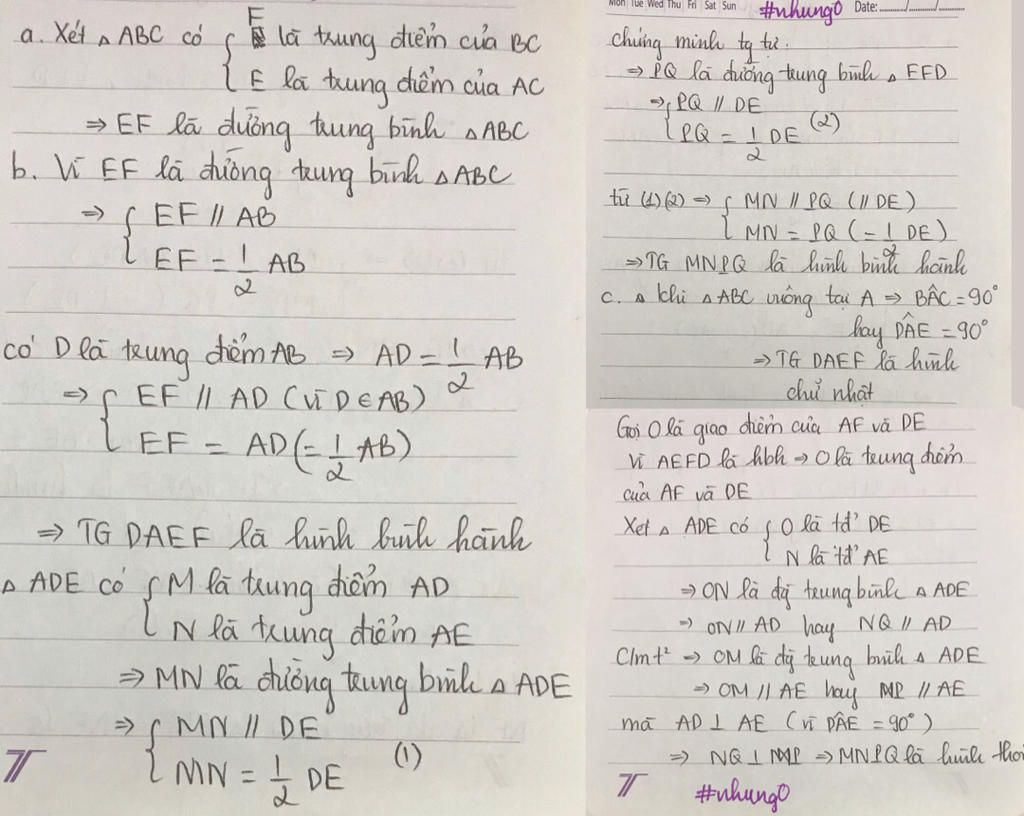 a. Xét △ ABC có { F là trung điểm của BC
E là trung điểm của AC
⇒ EF là đường trung bình △ABC
b. Vì EF là đường trung bình △ABC
⇒ { EF // AB
EF = 1/2 AB
có D là trung điểm AB ⇒ AD = 1/2 AB
⇒ { EF // AD (vì D ∈ AB)
EF = AD (= 1/2 AB)
⇒ TG DAEF là hình bình hành
△ ADE có { M là trung điểm AD
N là trung điểm AE
⇒ MN là đường trung bình △ ADE
⇒ { MN // DE
MN = 1/2 DE (1)
Mon Tue Wed Thu Fri Sat Sun #nhung0 Date:...../...../.....
chứng minh tg tự.
⇒ PQ là đường trung bình △ EFD
⇒ { PQ // DE
PQ = 1/2 DE (2)
từ (1)(2) ⇒ { MN // PQ (// DE)
MN = PQ (= 1/2 DE)
⇒ TG MNPQ là hình bình hành
c. △ khi △ABC vuông tại A ⇒ BÂC = 90°
hay DÂE = 90°
⇒ TG DAEF là hình
chữ nhật
Gọi O là giao điểm của AF và DE
Vì AEFD là hbh ⇒ O là trung điểm
của AF và DE
Xét △ ADE có { O là tđ' DE
N là tđ' AE
⇒ ON là đg trung bình △ ADE
⇒ ON // AD hay NQ // AD
C/m t² ⇒ OM là đg trung bình △ ADE
⇒ OM // AE hay MP // AE
mà AD ⊥ AE (vì DÂE = 90°)
⇒ NQ ⊥ MP ⇒ MNPQ là hình thoi
#nhung0